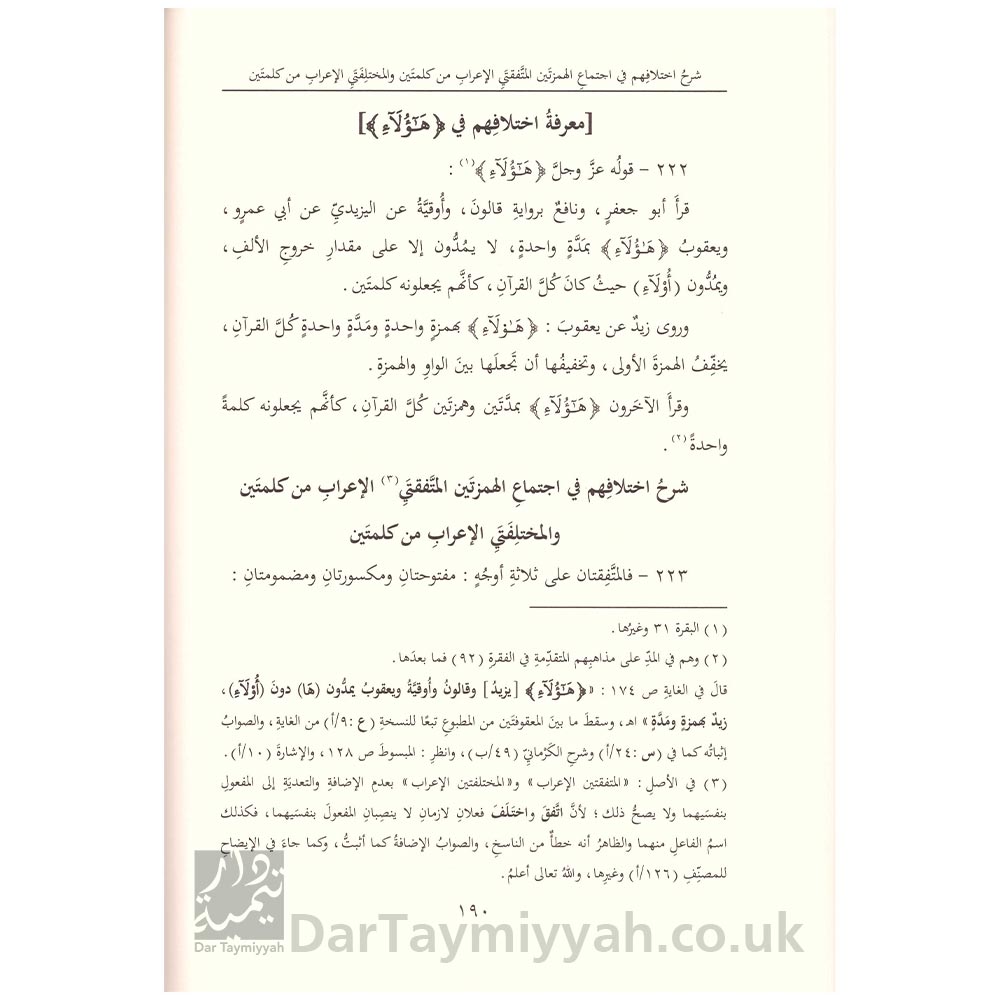 شرحُ اختلافِهم في اجتماعِ الهمزتَين المتَّفقتَيِ الإعرابِ من كلمتَين والمختلِفَتَيِ الإعرابِ من كلمتَين
[معرفةُ اختلافِهم في ﴿هَٰٓؤُلَآءِ﴾]
٢٢٢ – قولُه عزَّ وجلَّ ﴿هَٰٓؤُلَآءِ﴾(١) :
قرأَ أبو جعفرٍ، ونافعٌ بروايةِ قالونَ، وأُوقيَّةُ عن اليزيديِّ عن أبي عمرٍو،
ويعقوبُ ﴿هَٰؤُلَآءِ﴾ بمَدَّةٍ واحدةٍ، لا يمُدُّون إلا على مقدارِ خروجِ الألفِ،
ويمُدُّون (أُوْلَآءِ) حيثُ كانَ كُلَّ القرآنِ، كأنَّهم يجعلونه كلمتَين.
وروى زيدٌ عن يعقوبَ : ﴿هَٰوۡلَآءِ﴾ بهمزةٍ واحدةٍ ومَدَّةٍ واحدةٍ كُلَّ القرآنِ،
يخفِّفُ الهمزةَ الأولى، وتخفيفُها أن تَّجعلَها بينَ الواوِ والهمزةِ.
وقرأَ الآخَرون ﴿هَٰٓؤُلَآءِ﴾ بمدَّتَين وهمزتَين كُلَّ القرآنِ، كأنَّهم يجعلونه كلمةً
واحدةً(٢).
شرحُ اختلافِهم في اجتماعِ الهمزتَين المتَّفقتَيِ(٣) الإعرابِ من كلمتَين
والمختلِفَتَيِ الإعرابِ من كلمتَين
٢٢٣ – فالمتَّفِقتان على ثلاثةِ أوجُهٍ : مفتوحتانِ ومكسورتانِ ومضمومتانِ :
(١) البقرة ٣١ وغيرُها.
(٢) وهم في المدِّ على مذاهبِهم المتقدِّمةِ في الفقرةِ (٩٢) فما بعدَها.
قالَ في الغايةِ ص ١٧٤ : «﴿هَٰٓؤُلَآءِ﴾ [يزيدُ] وقالونُ وأُوقيَّةُ ويعقوبُ يمدُّون (هَا) دونَ (أُوْلَآءِ)،
زيدٌ بهمزةٍ ومَدَّةٍ» اهـ، وسقطَ ما بينَ المعقوفتَين من المطبوعِ تبعًا للنسخةِ (ع :٩/أ) من الغايةِ، والصوابُ
إثباتُه كما في (س :٢٤/أ) وشرحِ الكَرْمانيِّ (٤٩/ب)، وانظرِ : المبسوطَ ص ١٢٨، والإشارةَ (١٠/أ).
(٣) في الأصلِ : «المتفقتين الإعراب» و«المختلفتين الإعراب» بعدمِ الإضافةِ والتعديَةِ إلى المفعولِ
بنفسَيهما ولا يصحُّ ذلك؛ لأنَّ اتَّفقَ واختَلَفَ فعلانِ لازمانِ لا ينصِبانِ المفعولَ بنفسَيهما، فكذلك
اسمُ الفاعلِ منهما والظاهرُ أنه خطأٌ من الناسخِ، والصوابُ الإضافةُ كما أثبتُّ، وكما جاءَ في الإيضاحِ
للمصنِّفِ (١٢٦/أ) وغيرِها، واللهُ تعالى أعلمُ.
١٩٠
دار تيمية
Dar Taymiyyah
DarTaymiyyah.co.uk